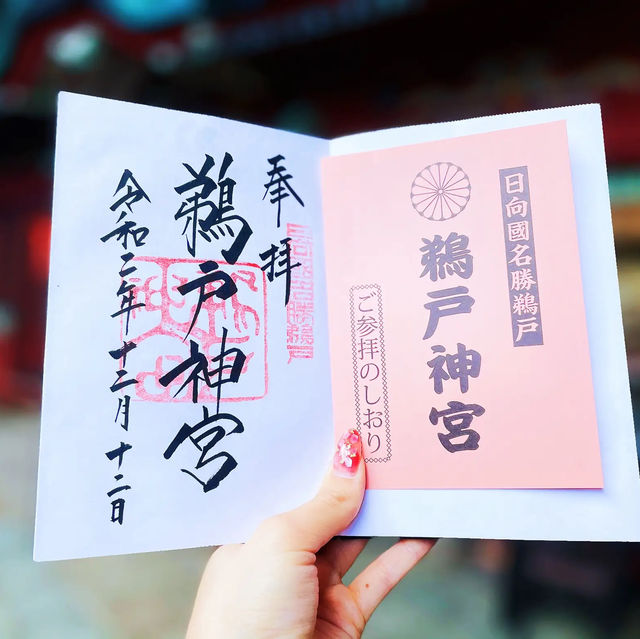 日向國名勝鵜戸
鵜戸神宮
ご参拝のしおり
奉拝
鵜戸神宮
令和二年十二月十二日